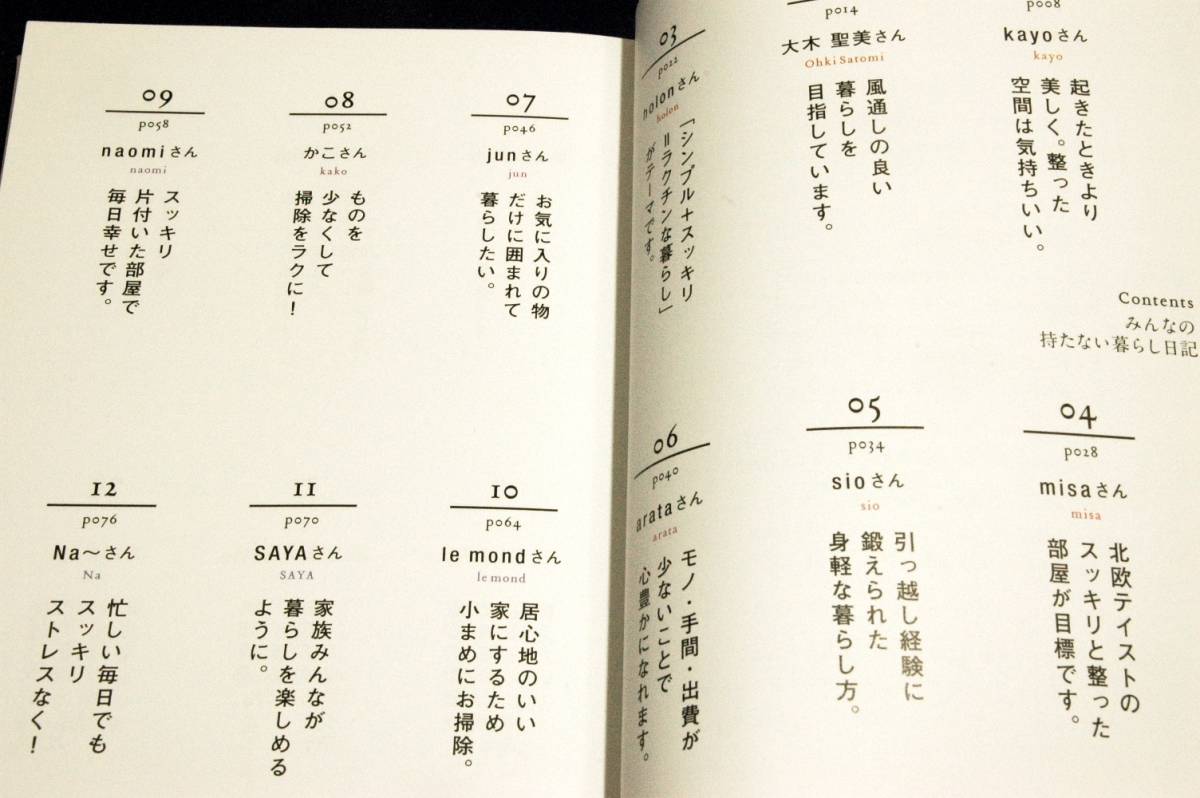 Contents
みんなの
持たない暮らし日記
p008
kayoさん
kayo
起きたときより
美しく。整った
空間は気持ちいい。
p014
大木 聖美さん
Ohki Satomi
風通しの良い
暮らしを
目指しています。
03
p022
holonさん
holon
「シンプル+スッキリ
=ラクチンな暮らし」
がテーマです。
04
p028
misaさん
misa
北欧テイストの
スッキリと整った
部屋が目標です。
05
p034
sioさん
sio
引っ越し経験に
鍛えられた
身軽な暮らし方。
06
p040
arataさん
arata
モノ・手間・出費が
少ないことで
心豊かになれます。
07
p046
junさん
jun
お気に入りの物
だけに囲まれて
暮らしたい。
08
p052
かこさん
kako
ものを
少なくして
掃除をラクに!
09
p058
naomiさん
naomi
スッキリ
片付いた部屋で
毎日幸せです。
10
p064
le mondさん
le mond
居心地のいい
家にするため
小まめにお掃除。
11
p070
SAYAさん
SAYA
家族みんなが
暮らしを楽しめる
ように。
12
p076
Na～さん
Na
忙しい毎日でも
スッキリ
ストレスなく!